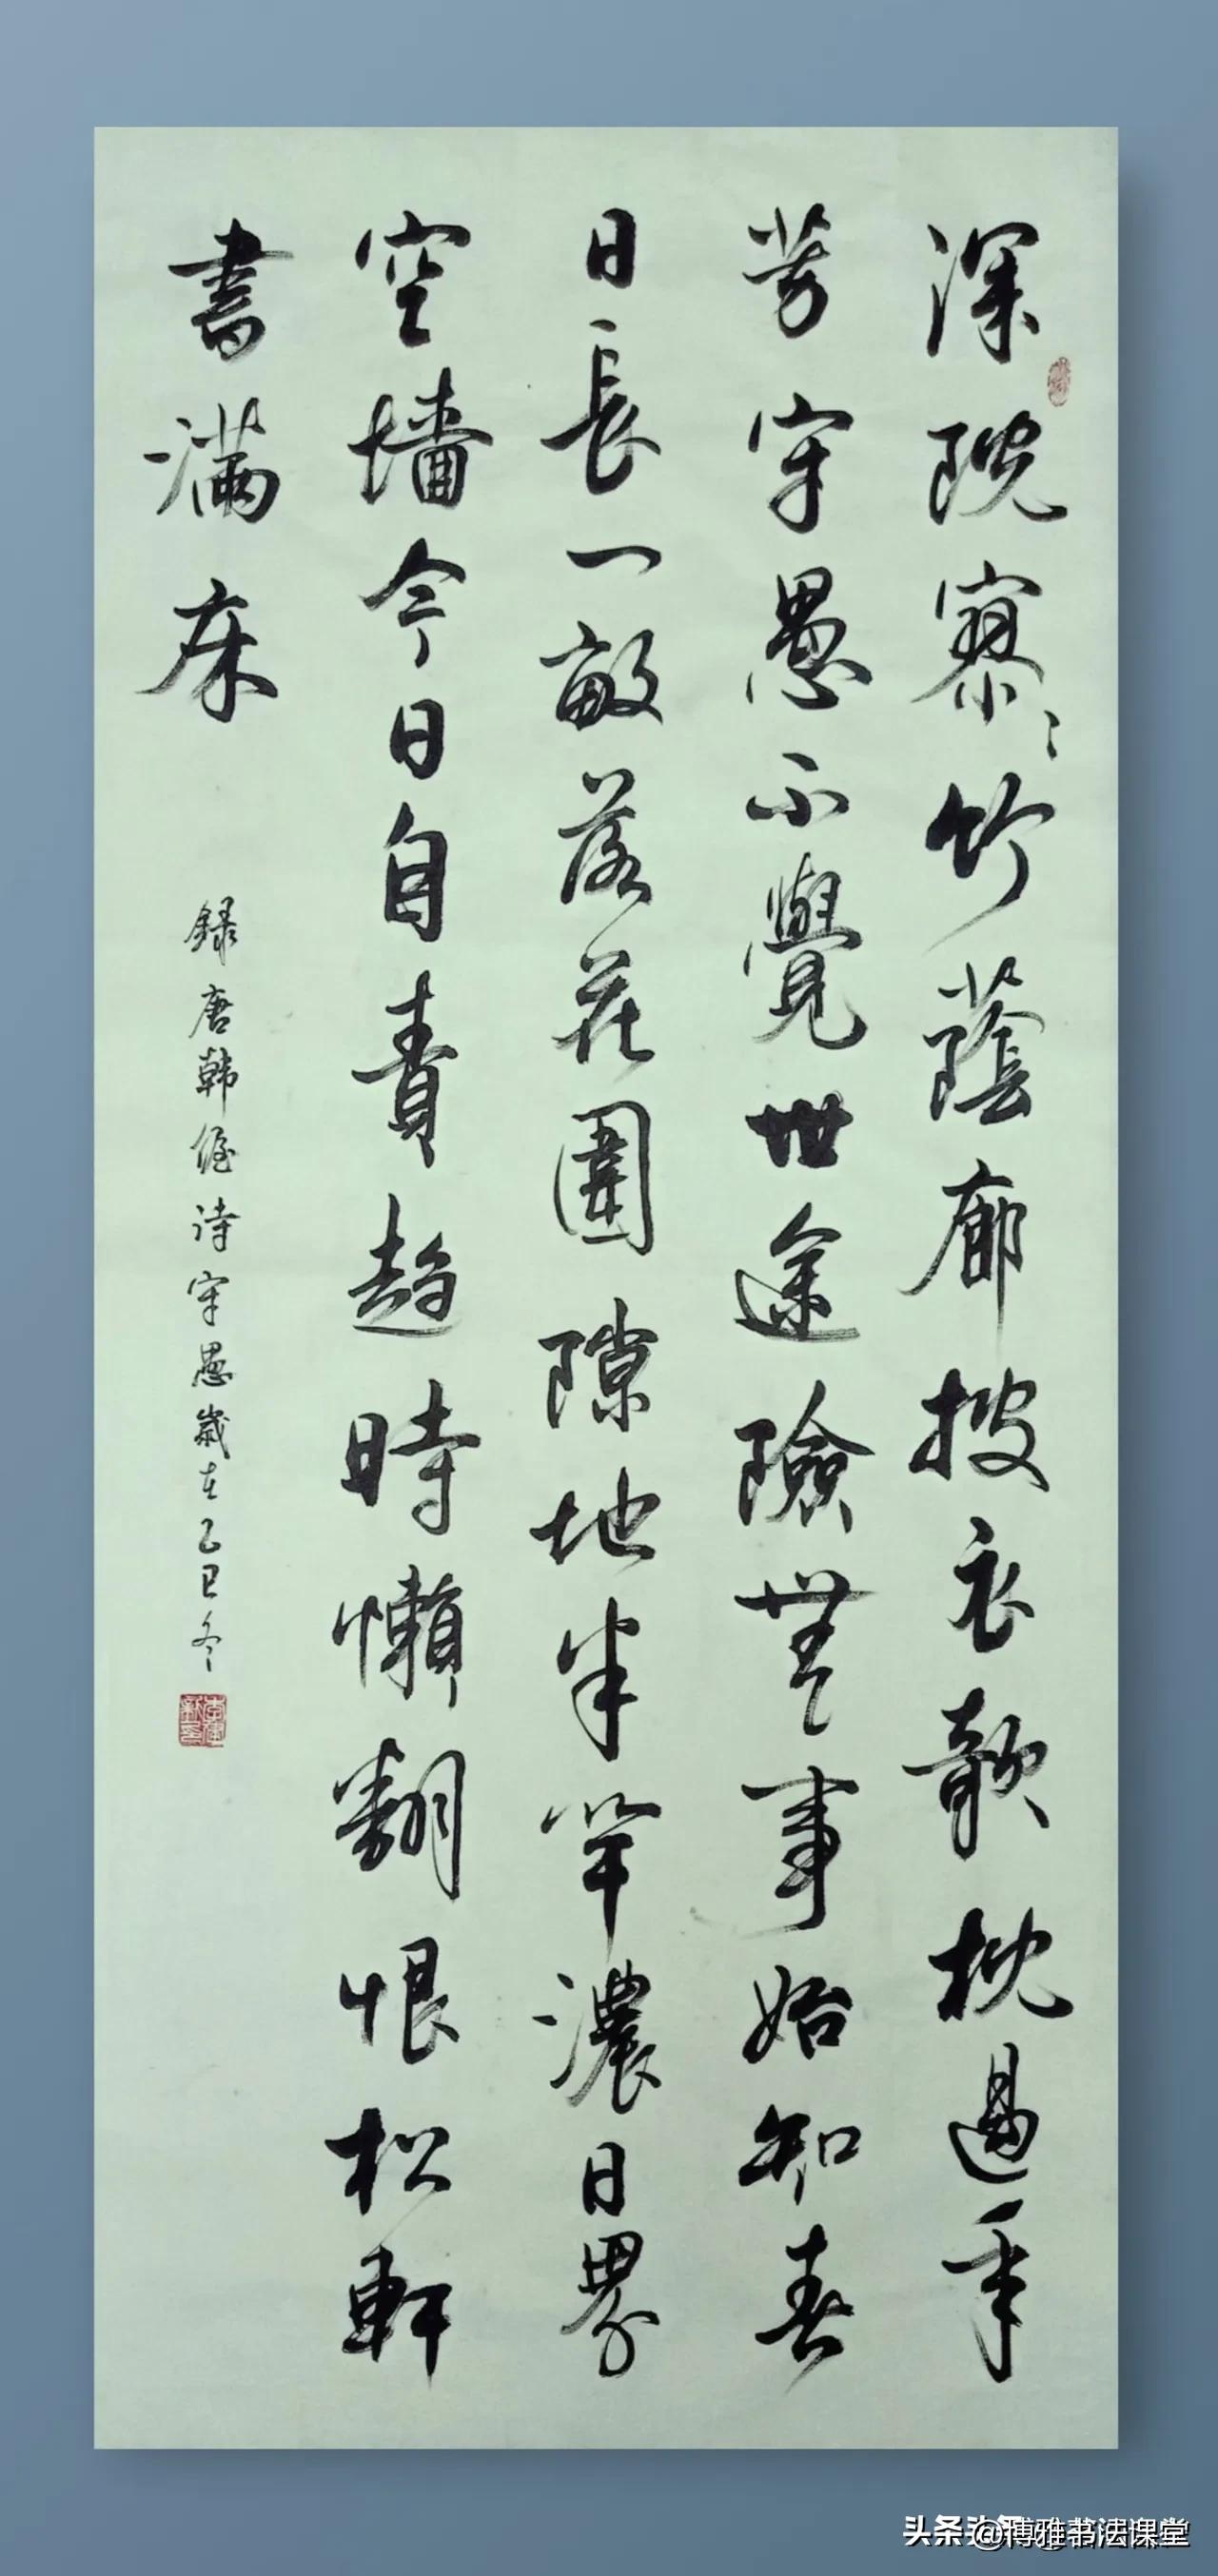 深院寮々竹蔭廊披衣欹枕過年
芳守愚不覺世途險無事始知春
日長一畝落花圍隙地半竿濃日界
空墻今日自責趍時懶翻恨松軒
書滿床
錄唐韓偓诗守愚歲在乙巳冬
头条 @博雅书法课堂